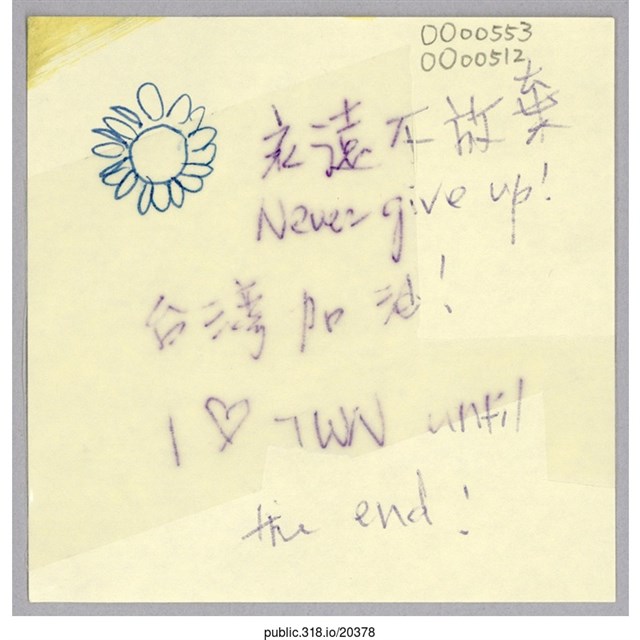 0000553
0000512
永遠不放棄
Never give up!
台灣加油!
I ♡ TWN until
the end!
public.318.io/20378